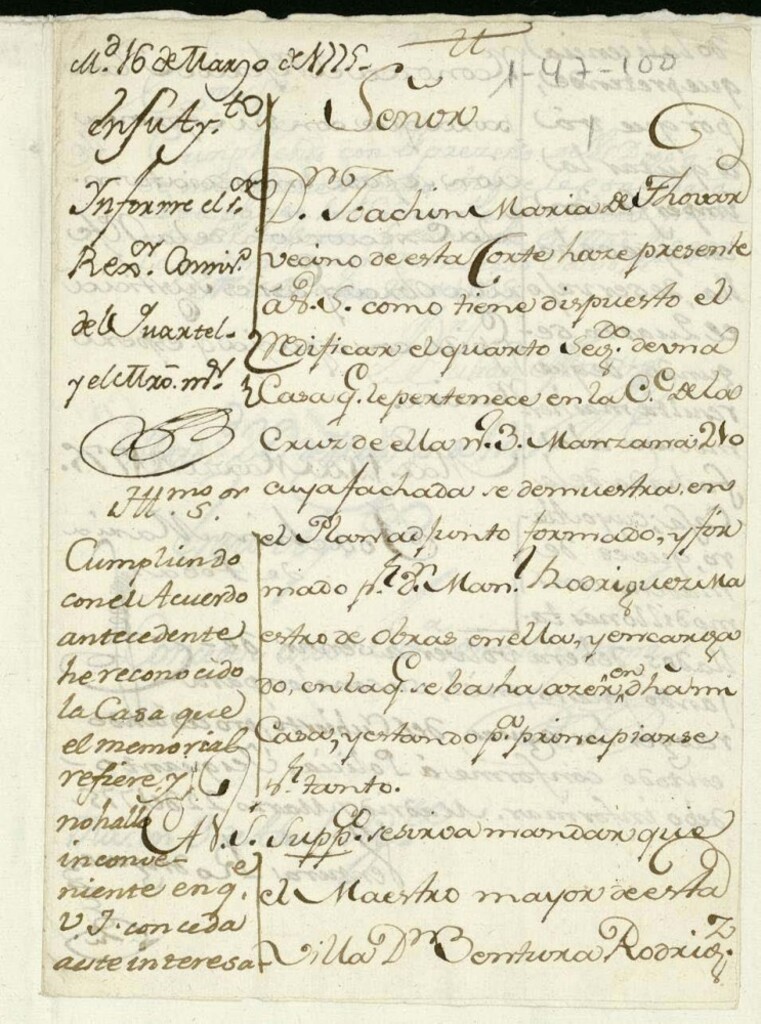 M.d 16 de Marzo de 1775.
1-47-100
en su Ay.to
Informe el S.or
Rex.or Comis.o
del Quartel
y el Mro. m.or
Ill.mo S.or
Cumpliendo
con el Acuerdo
antecedente
he reconocido
la Casa que
el memorial
refiere, y
no hallo
inconve-
niente en q.e
V. I. conceda
a este interesa-
Señor
D.n Joachin Maria de Thovar
vecino de esta Corte haze presente
a V. S. como tiene dispuesto el
Redificar el quarto Seg.do de una
Casa q. le pertenece en la C.e de la
Cruz de ella n.o 3. Manzana 210
cuya fachada se demuestra, en
el Plan adjunto formado, y for
mado p.r d.n Man.l Rodriguez Ma
estro de Obras en ella, y encarga
do, en la q. se ba ha azer, en dha mi
Casa, y estando p.a principiarse
p.r tanto.
A V. S. Supp.co se sirva mandar que
el Maestro mayor de esta
Villa D.n Bentura Rodrig.z